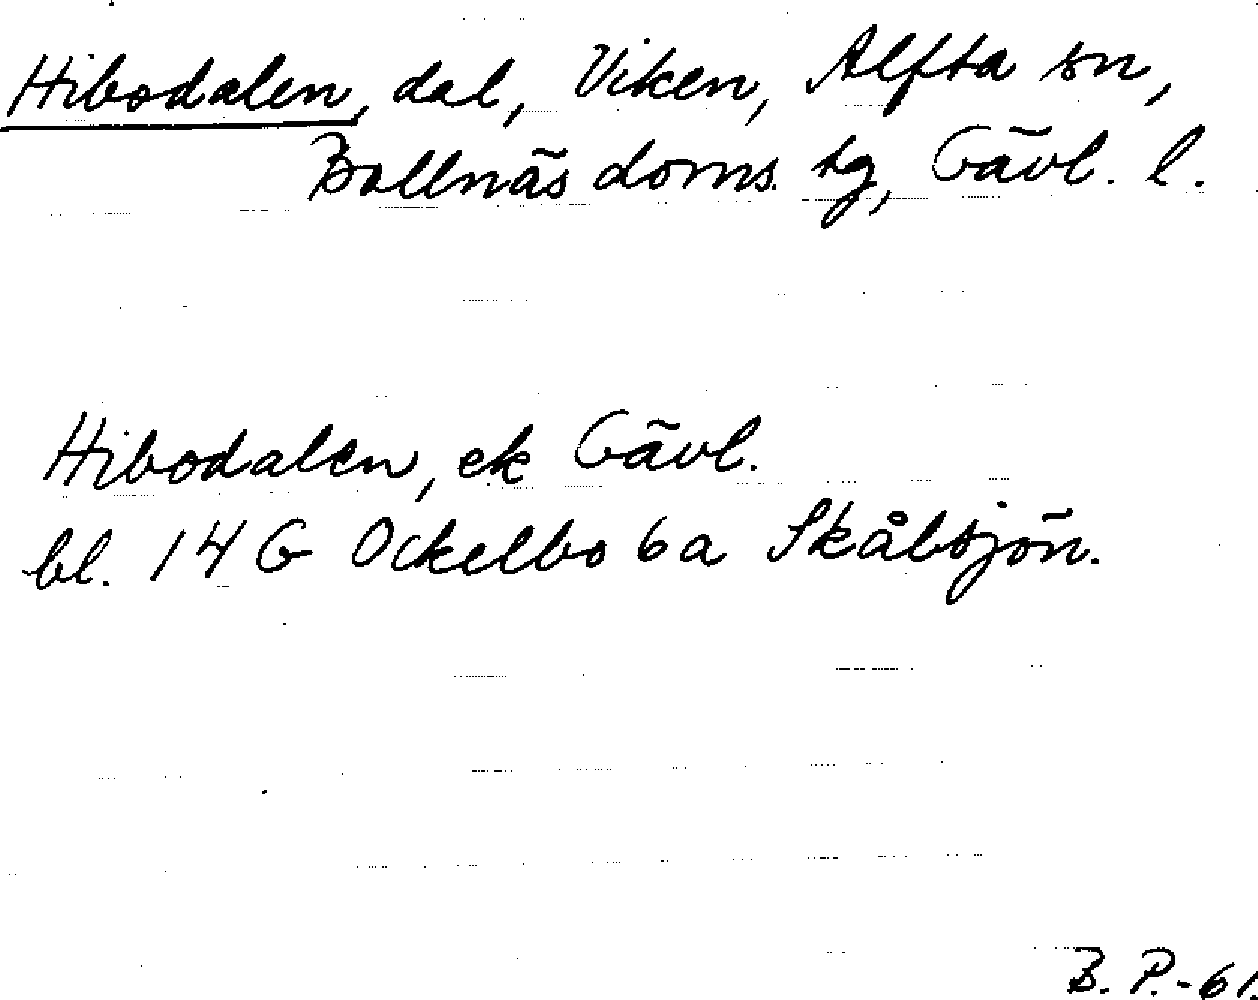 Hibodalen, dal, Viken, Alfta sn,
Bollnäs doms. tg, Gävl. l.
Hibodalen, ek Gävl.
bl. 14 G Ockelbo 6a Skålsjön.
B. P.-61.